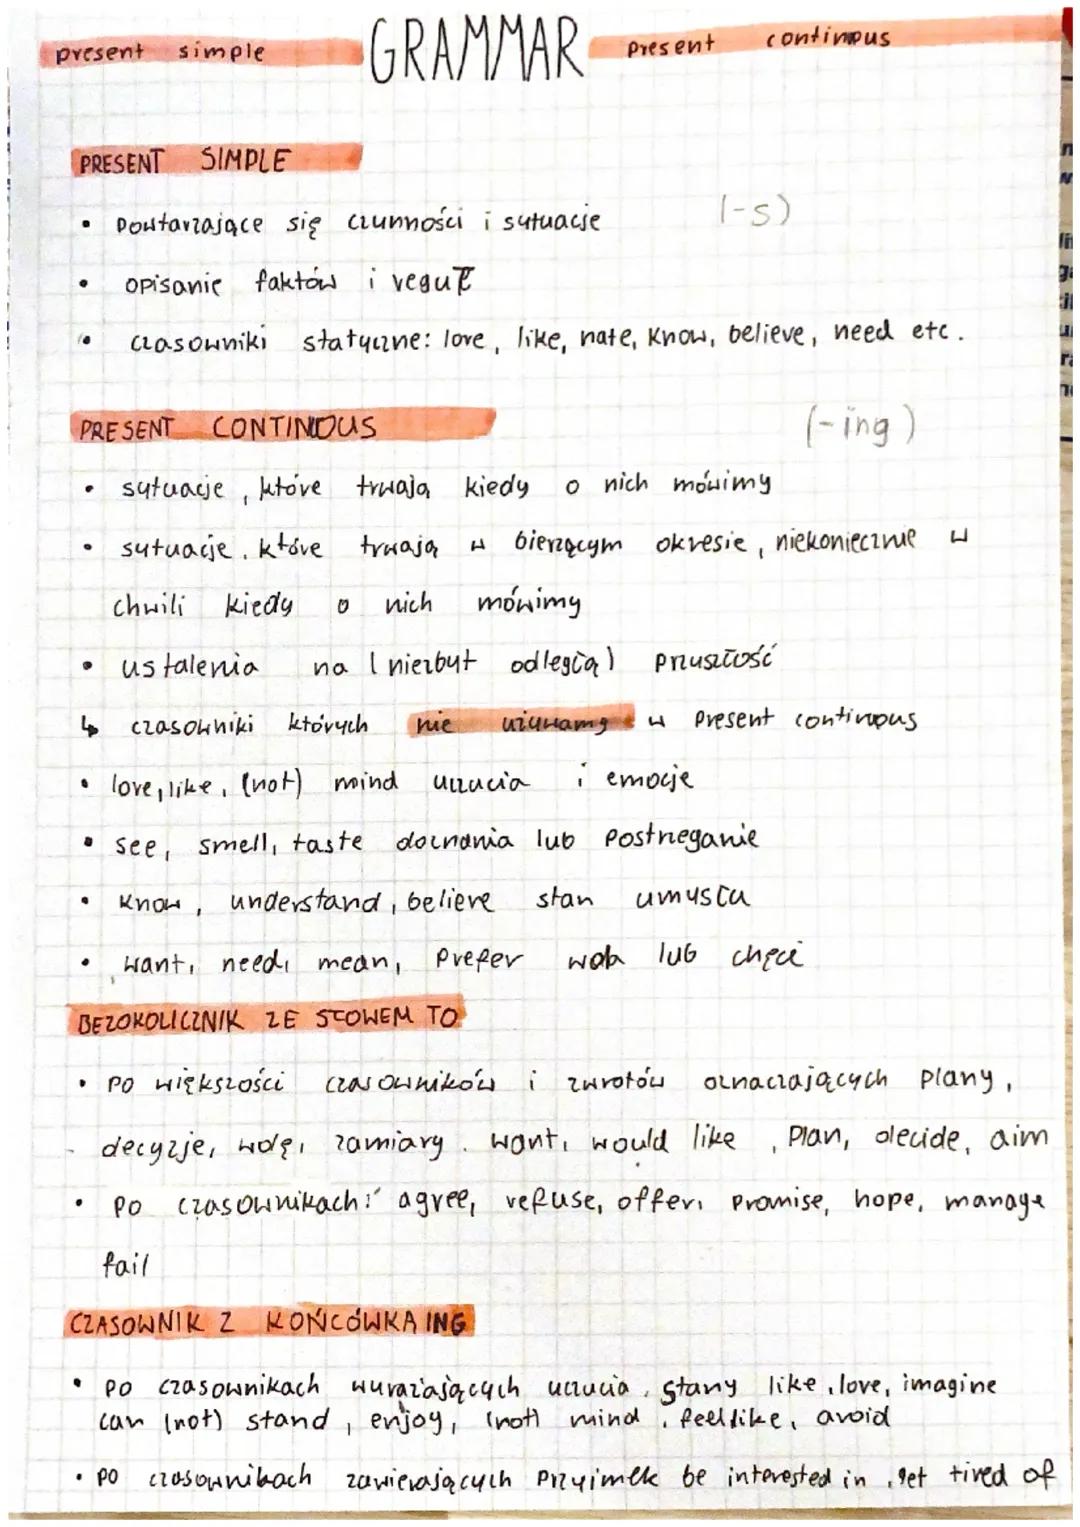 present simple GRAMMAR present continous
PRESENT SIMPLE
• powtarzające się czynności i sytuacje (-s)
• opisanie faktów i reguł
• czasowniki statyczne: love, like, hate, know, believe, need etc.
PRESENT CONTINOUS (-ing)
• sytuacje, które trwają kiedy o nich mówimy
• sytuacje, które trwają w bierzącym okresie, niekoniecznie w
chwili kiedy o nich mówimy
• ustalenia na (niezbyt odległą) przyszłość
↳ czasowniki których nie używamy w present continous
• love, like, (not) mind uczucia i emocje
• see, smell, taste doznania lub postrzeganie
• know, understand, believe stan umysłu
• want, need, mean, prefer wola lub chęci
BEZOKOLICZNIK ZE SŁOWEM TO
• po większości czasowników i zwrotów oznaczających plany,
decyzje, wolę, zamiary. want, would like, plan, decide, aim
• po czasownikach: agree, refuse, offer, promise, hope, manage
fail
CZASOWNIK Z KOŃCÓWKA ING
• po czasownikach wyrażających uczucia, stany like, love, imagine
can (not) stand, enjoy, (not) mind, feel like, avoid
• po czasownikach zawierających przyimek be interested in, get tired of